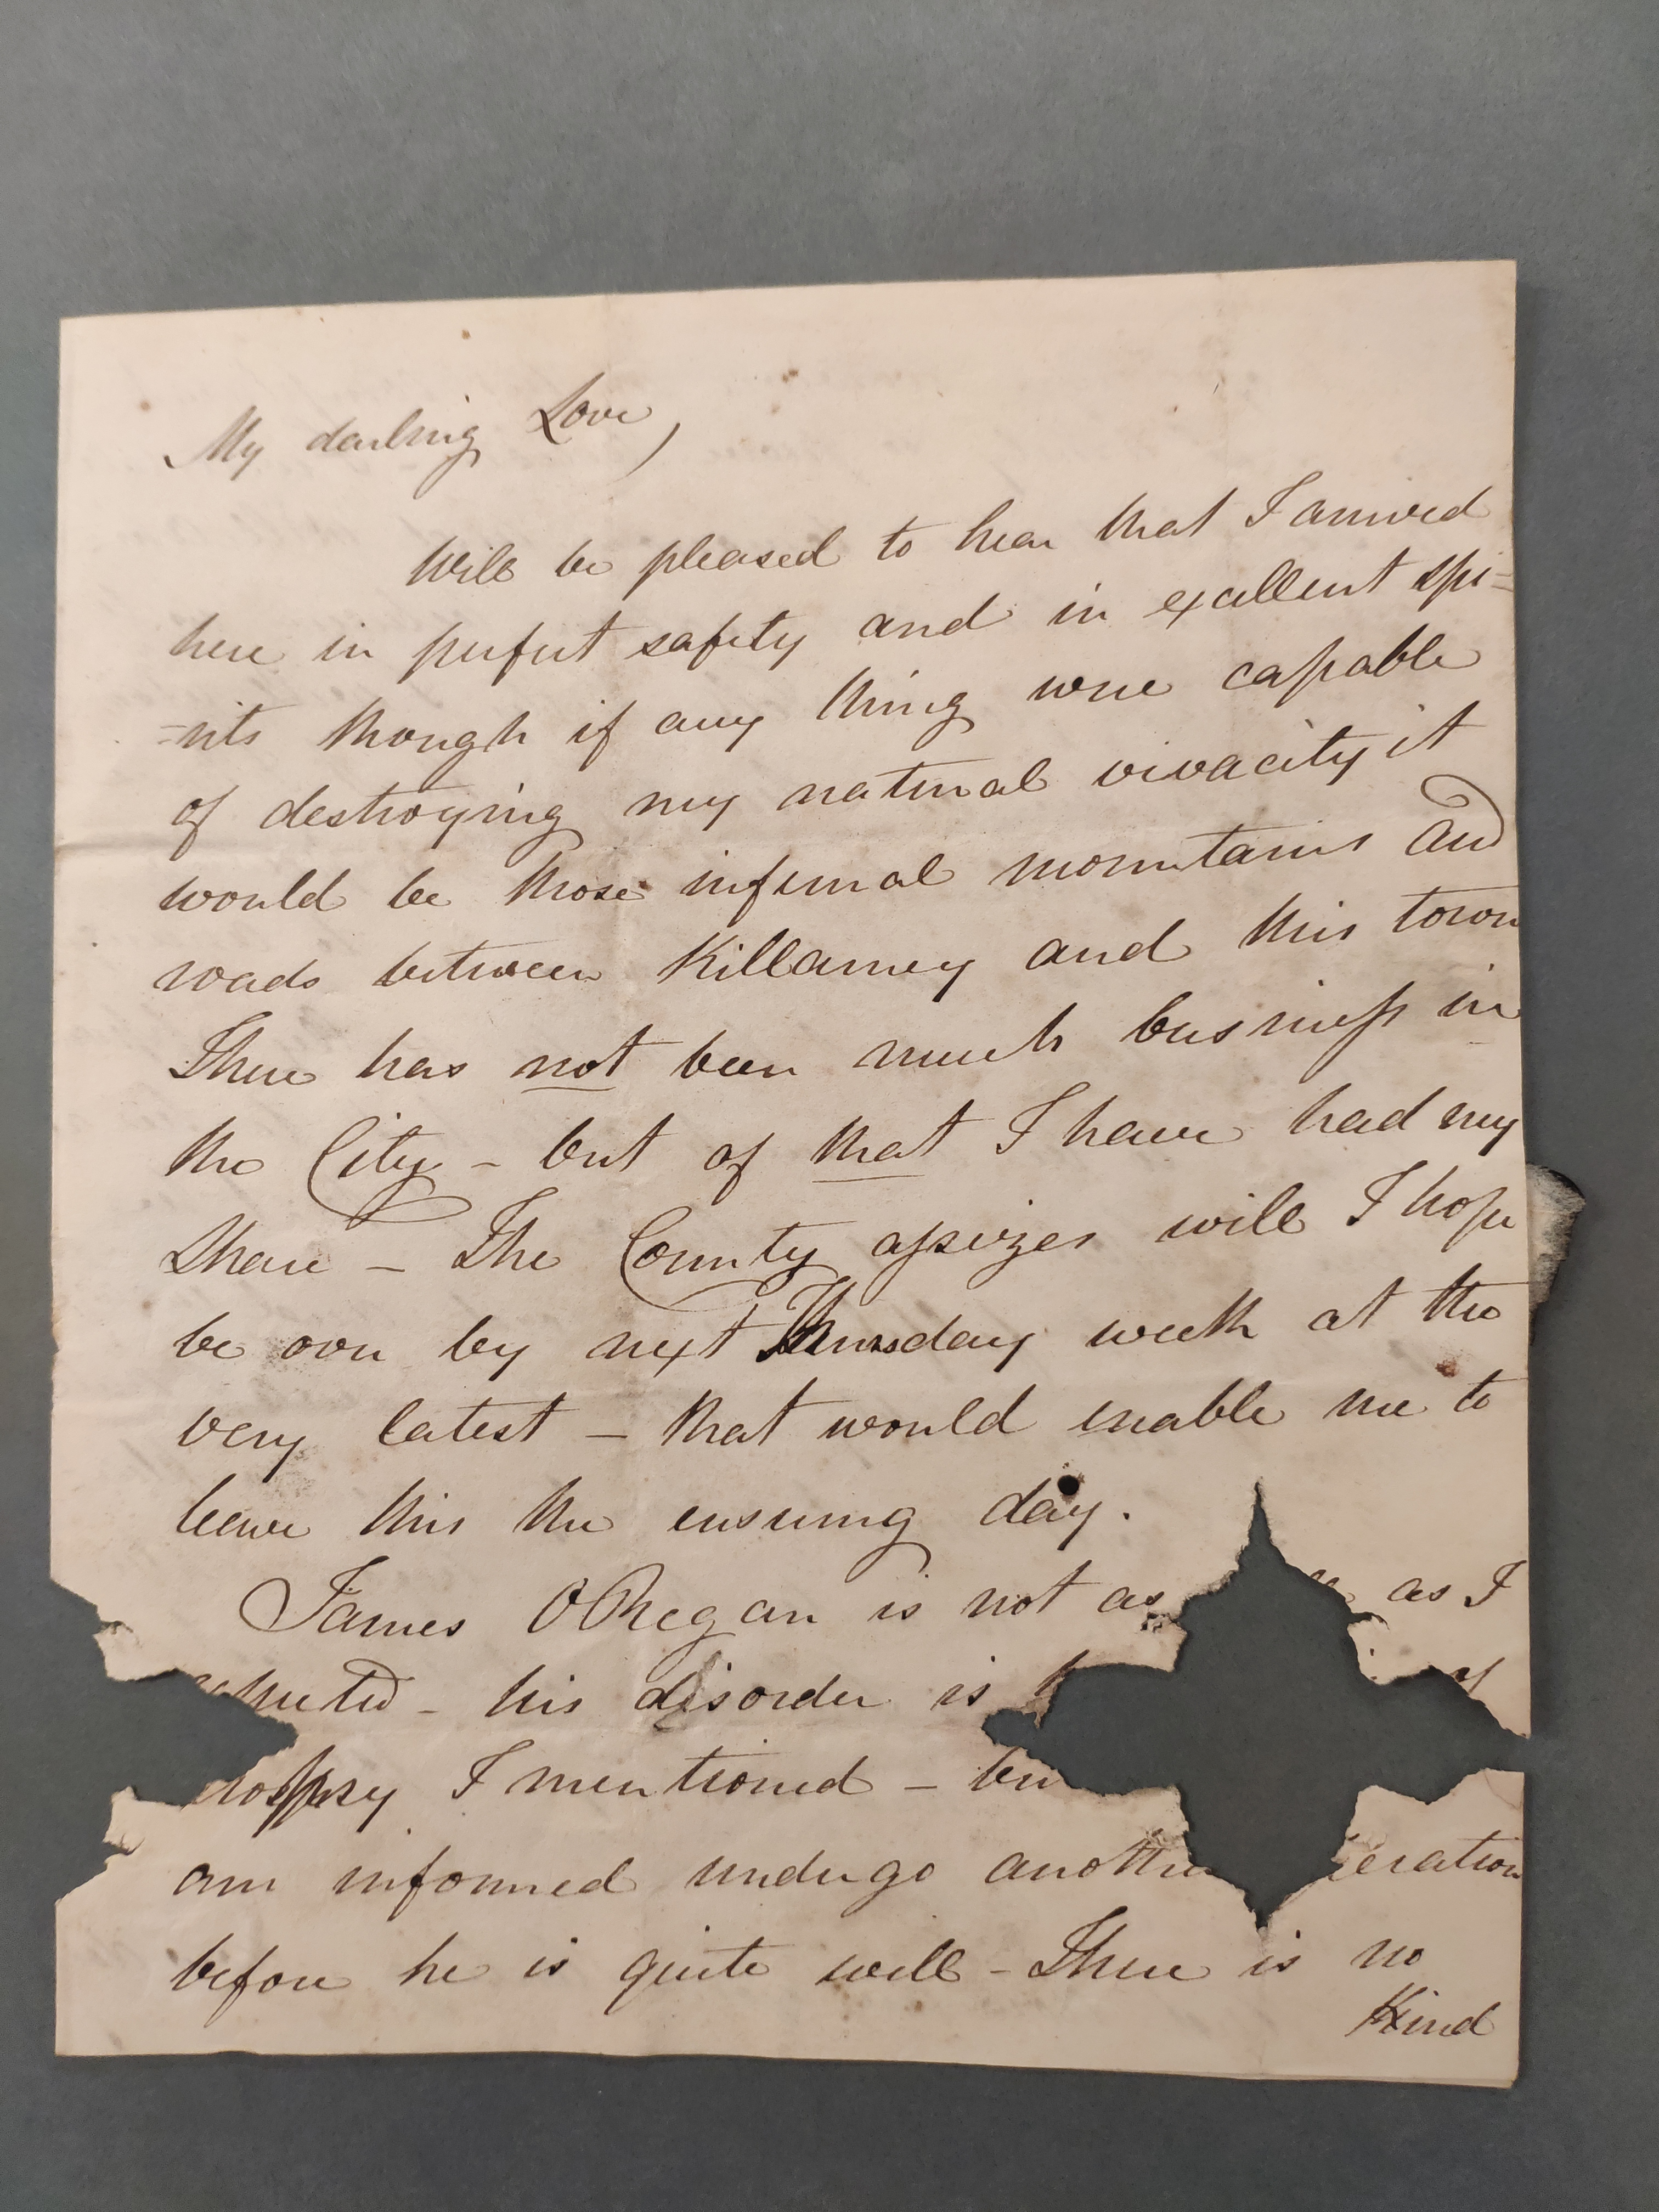 My darling Love,
Will be pleased to hear that I arrived
here in perfect safety and in excellent spi=
=rits though if any thing were capable
of destroying my natural vivacity it
would be those infernal mountains and
roads between Killarney and this town
There has not been much business in
the City - but of that I have had my
share - The County assizes will I hope
be over by next Thursday week at the
very latest - that would enable me to
leave this the ensuing day.
James O Regan is not as as I
his disorder is
I mentioned -
am informed undergo
before he is quite well - There is no
Kind